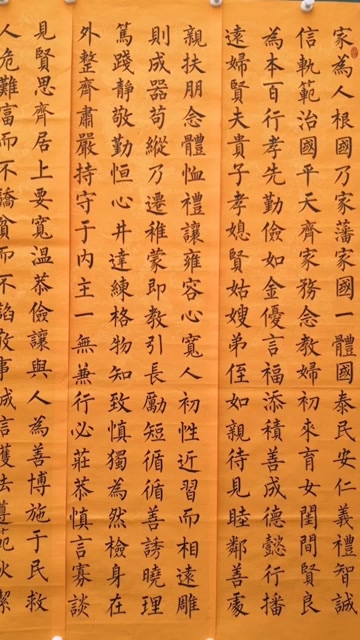 家為人根國乃家藩家國一體國泰民安仁義禮智誠
信軌範治國平天齊家務念教婦初來育女閨間賢良
為本百行孝先勤儉如金優言福添積善成德懿行播
遠婦賢夫貴子孝媳賢姑嫂弟侄如親待見睦鄰善處
親扶朋念體恤禮讓雍容心寬人初性近習而相遠雕
則成器苟縱乃遷稚蒙即教引長勵短循循善誘曉理
篤踐静敬勤恒心井達練格物知致慎獨為然檢身在
外整齊肅嚴持守于内主一無兼行必莊恭慎言寡談
見賢思齊居上要寬温恭儉讓與人為善博施于民救
人危難富而不驕貧而不諂敬事誠言護法遵範